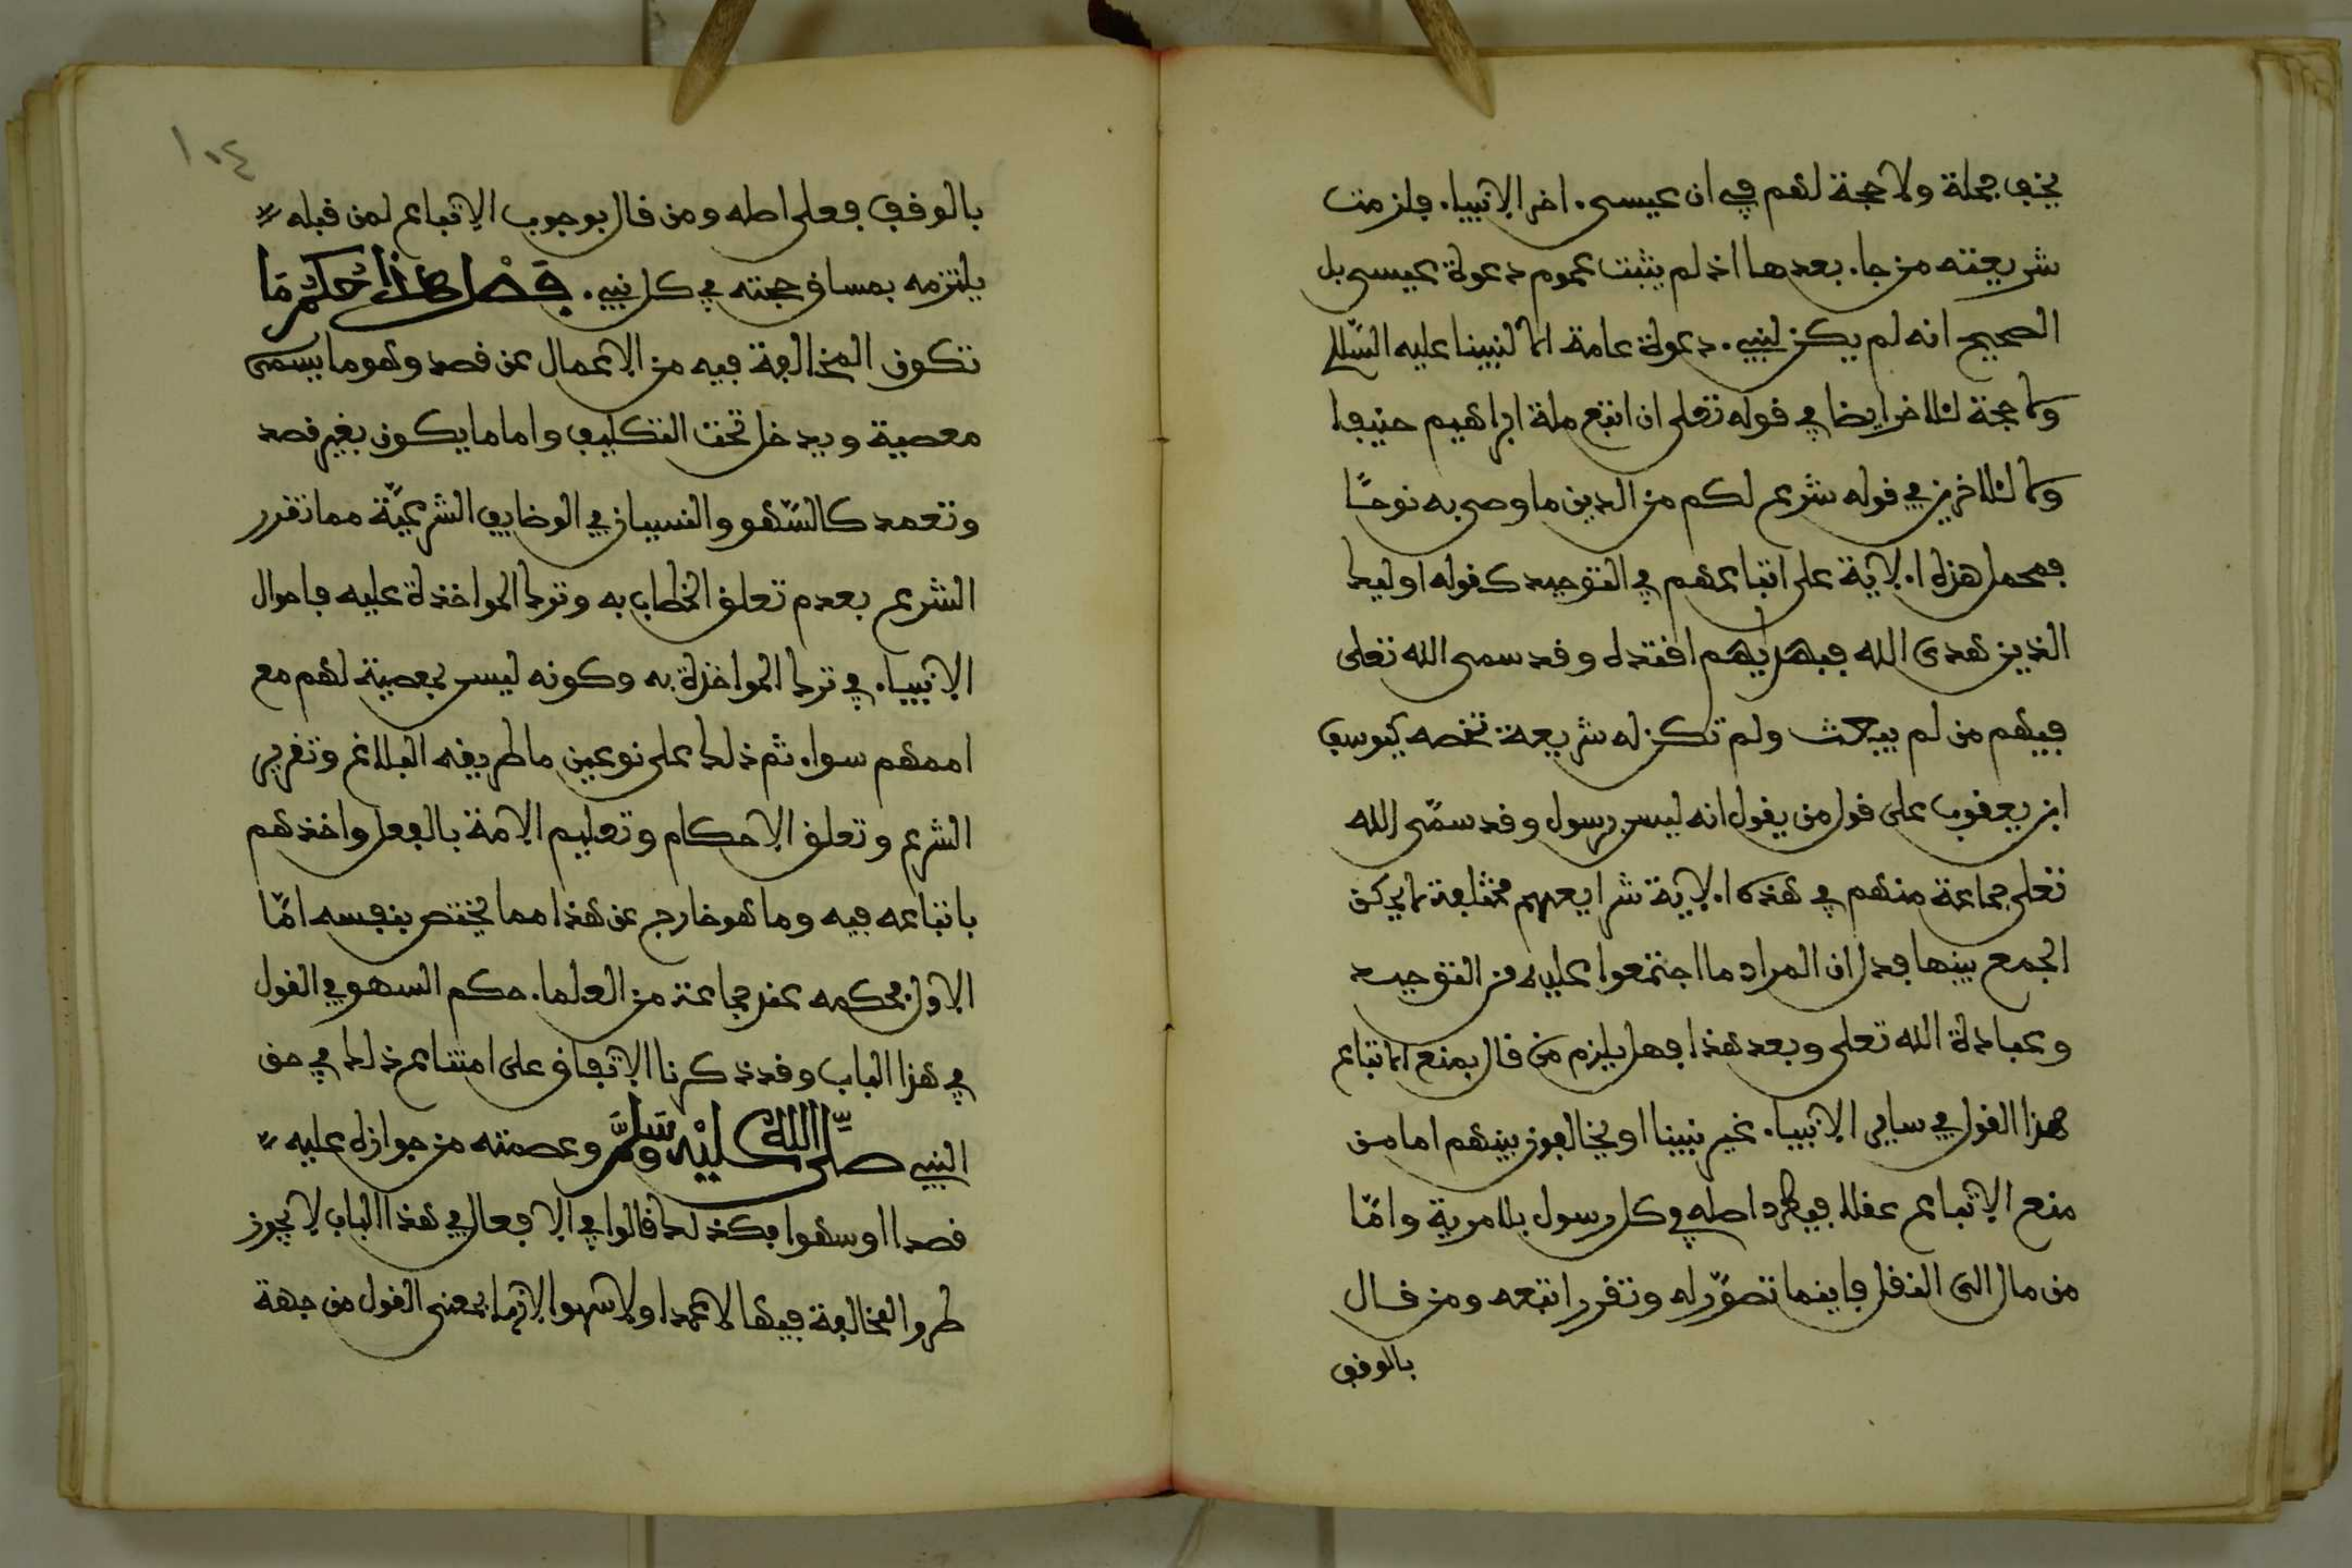 يخف جملة ولا حجة لهم في ان عيسى اخر الانبياء فلزمت
شريعته من جاء بعدها اذ لم يثبت عموم دعوة عيسى بل
الصحيح انه لم يكن لنبيء دعوة عامة الا لنبينا عليه السلم
ولا حجة للاخر ايضا في قوله تعلى ان اتبع ملة ابراهيم حنيفا
ولا للاخرين في قوله شرع لكم من الدين ما وصى به نوحًا
فمحمل هذه الاية على اتباعهم في التوحيد كقوله اوليك
الذين هدى الله فبهديهم اقتده وقد سمى الله تعلى
فيهم من لم يبعث ولم تكن له شريعة تخصه كيوسف
ابن يعقوب على قول من يقول انه ليس برسول وقد سمّى الله
تعلى جماعة منهم في هذه الاية شرايعهم مختلفة لا يمكن
الجمع بينها فدل ان المراد ما اجتمعوا عليه من التوحيد
وعبادة الله تعلى وبعد هذا فهل يلزم من قال بمنع الاتباع
هذا القول في ساير الانبياء غير نبينا او يخالفون بينهم اما من
منع الاتباع عقلا فيطرد اصله في كل رسول بلا مرية وامّا
من مال الى النقل فاينما تصوّر له وتقرر اتبعه ومن قال
بالوقف
١٠٤
بالوقف فعلى اصله ومن قال بوجوب الاتباع لمن قبله
يلتزمه بمساق حجته في كل نبيء. فَصْل هَاذَا حُكْمُ مَا
تكون المخالفة فيه من الاعمال عن قصد وهو ما يسمى
معصية ويدخل تحت التكليف واما ما يكون بغير قصد
وتعمد كالسّهو والنسيان في الوضايف الشرعيّة مما تقرر
الشرع بعدم تعلق الخطاب به وترك المواخذة عليه فاحوال
الانبياء في ترك المواخذة به وكونه ليس بمعصية لهم مع
اممهم سواء ثم ذلك على نوعين ما طريقه البلاغ وتقرير
الشرع وتعلق الاحكام وتعليم الامة بالفعل واخذهم
باتباعه فيه وما هو خارج عن هذا مما يختص بنفسه امّا
الاول فحكمه عند جماعة من العلماء حكم السهو في القول
في هذا الباب وقد ذكرنا الاتفاق على امتناع ذلك في حق
النبيء صَلَّى اللهُ عَلَيْهِ وَسَلَّمَ وعصمته من جوازه عليه
قصدا او سهوا فكذلك قالوا في الافعال في هذا الباب لا يجوز
طرو المخالفة فيها لا عمدا ولا سهوا لانها بمعنى القول من جهة